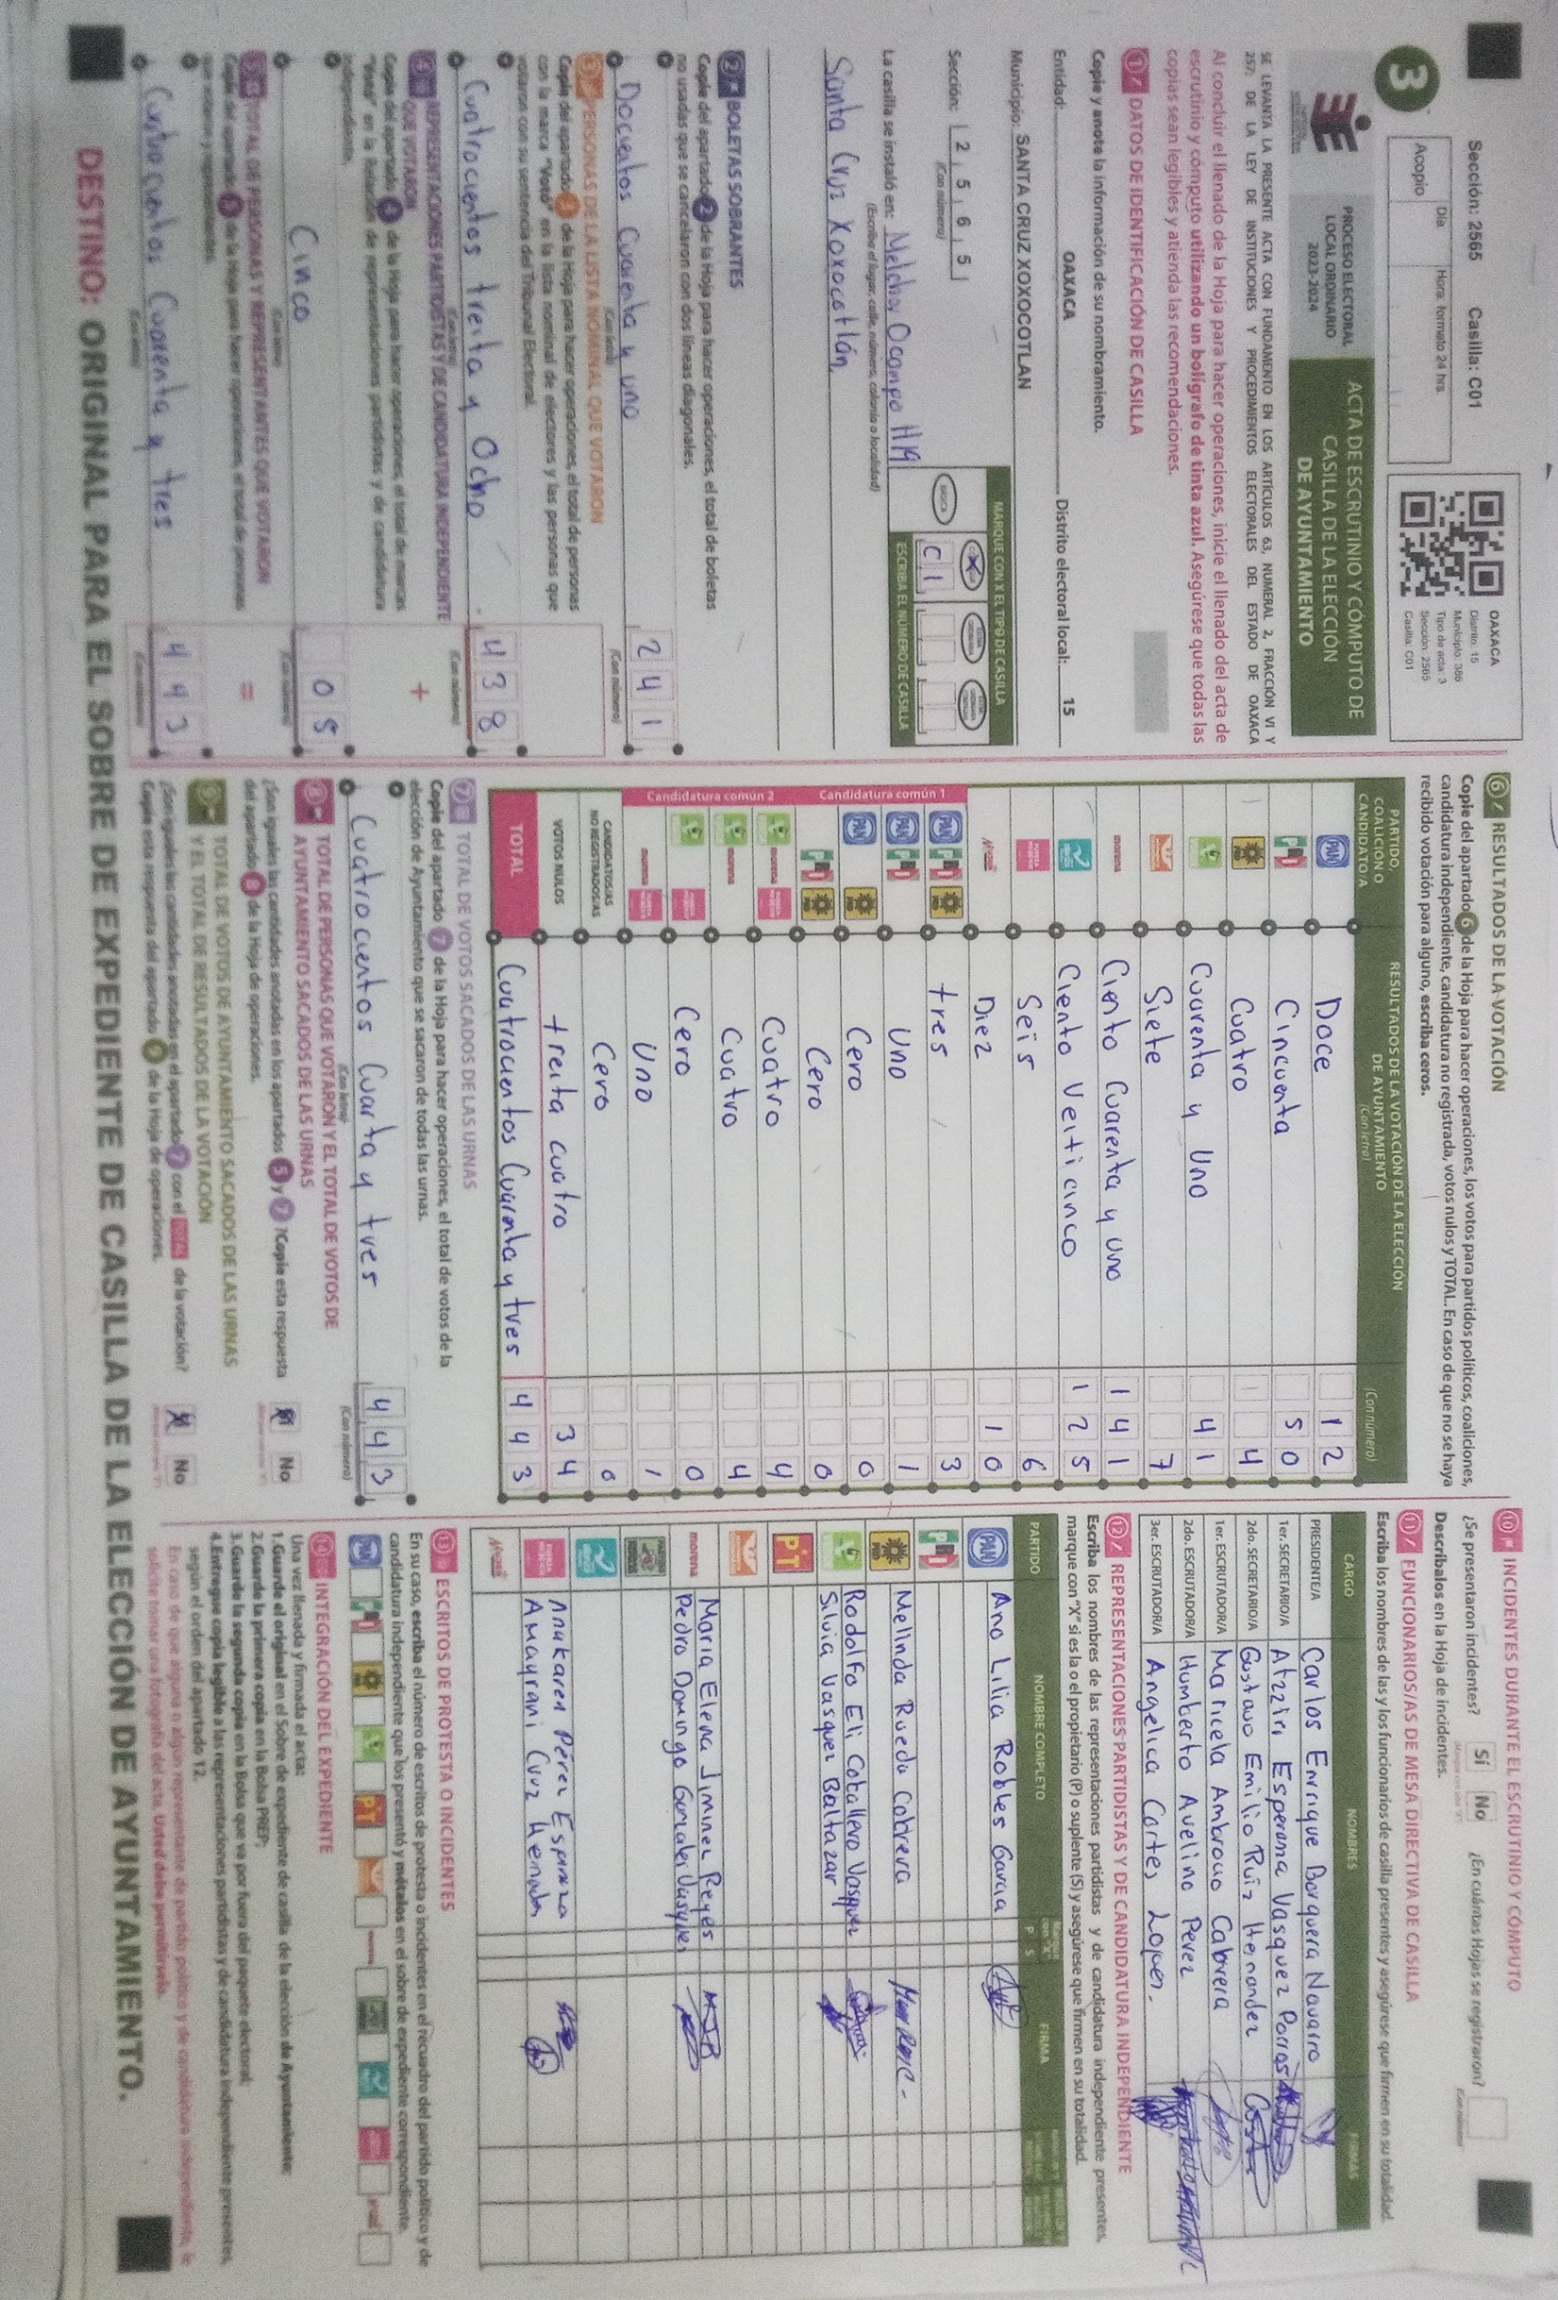 Sección: 2565 Casilla: C01
3
Día
Hora: formato 24 hrs.
Acopio
OAXACA
Distrito: 15
Municipio: 386
Tipo de acta: 3
Sección: 2565
Casilla: C01
PROCESO ELECTORAL
LOCAL ORDINARIO
2023-2024
ACTA DE ESCRUTINIO Y CÓMPUTO DE
CASILLA DE LA ELECCIÓN
DE AYUNTAMIENTO
SE LEVANTA LA PRESENTE ACTA CON FUNDAMENTO EN LOS ARTÍCULOS 63, NUMERAL 2, FRACCIÓN VI Y
257; DE LA LEY DE INSTITUCIONES Y PROCEDIMIENTOS ELECTORALES DEL ESTADO DE OAXACA
Al concluir el llenado de la Hoja para hacer operaciones, inicie el llenado del acta de
escrutinio y cómputo utilizando un bolígrafo de tinta azul. Asegúrese que todas las
copias sean legibles y atienda las recomendaciones.
1 DATOS DE IDENTIFICACIÓN DE CASILLA
Copie y anote la información de su nombramiento.
Entidad: OAXACA Distrito electoral local: 15
Municipio: SANTA CRUZ XOXOCOTLAN
Sección: 2 5 6 5
(Con número)
MARQUE CON X EL TIPO DE CASILLA
BÁSICA
C 1
ESCRIBA EL NÚMERO DE CASILLA
La casilla se instaló en: Melchor Ocampo H19
(Escriba el lugar, calle, número, colonia o localidad)
Santa Cruz Xoxocotlán
2 BOLETAS SOBRANTES
Copie del apartado 2 de la Hoja para hacer operaciones, el total de boletas
no usadas que se cancelaron con dos líneas diagonales.
Docientos Cuarenta y uno 2 4 1
(Con letra) (Con número)
3 PERSONAS DE LA LISTA NOMINAL QUE VOTARON
Copie del apartado 3 de la Hoja para hacer operaciones, el total de personas
con la marca "Votó" en la lista nominal de electores y las personas que
votaron con su sentencia del Tribunal Electoral.
Cuatrocientos treita y Ocho 4 3 8
(Con letra) (Con número)
4 REPRESENTACIONES PARTIDISTAS Y DE CANDIDATURA INDEPENDIENTE
QUE VOTARON
+
Copie del apartado 4 de la Hoja para hacer operaciones, el total de marcas
"Votó" en la Relación de representaciones partidistas y de candidatura
independiente.
Cinco 0 5
(Con letra) (Con número)
5 TOTAL DE PERSONAS Y REPRESENTANTES QUE VOTARON
=
Copie del apartado 5 de la Hoja para hacer operaciones, el total de personas
que votaron y representantes.
Cuatrocientos Cuarenta y tres 4 4 3
(Con letra) (Con número)
6 RESULTADOS DE LA VOTACIÓN
Copie del apartado 6 de la Hoja para hacer operaciones, los votos para partidos políticos, coaliciones,
candidatura independiente, candidatura no registrada, votos nulos y TOTAL. En caso de que no se haya
recibido votación para alguno, escriba ceros.
PARTIDO,
COALICIÓN O
CANDIDATO/A
RESULTADOS DE LA VOTACIÓN DE LA ELECCIÓN
DE AYUNTAMIENTO
(Con letra)
(Con número)
PAN Doce 1 2
PRI Cincuenta 5 0
PRD Cuatro 4
Cuarenta y Uno 4 1
Siete 7
morena Ciento Cuarenta y uno 1 4 1
Ciento Veiti cinco 1 2 5
Seis 6
Diez 1 0
Candidatura común 1
PAN PRI PRD tres 3
PAN PRI Uno 1
PAN PRD Cero 0
PRI PRD Cero 0
Candidatura común 2
morena Cuatro 4
morena Cuatro 4
Cero 0
morena Uno 1
CANDIDATOS/AS
NO REGISTRADOS/AS
Cero 0
VOTOS NULOS treita cuatro 3 4
TOTAL Cuatrocientos Cuarenta y tres 4 4 3
7 TOTAL DE VOTOS SACADOS DE LAS URNAS
Copie del apartado 7 de la Hoja para hacer operaciones, el total de votos de la
elección de Ayuntamiento que se sacaron de todas las urnas.
Cuatrocientos Cuarta y tres 4 4 3
(Con letra) (Con número)
8 TOTAL DE PERSONAS QUE VOTARON Y EL TOTAL DE VOTOS DE
AYUNTAMIENTO SACADOS DE LAS URNAS
¿Son iguales las cantidades anotadas en los apartados 5 y 7? Copie esta respuesta
del apartado 8 de la Hoja de operaciones.
Sí No
9 TOTAL DE VOTOS DE AYUNTAMIENTO SACADOS DE LAS URNAS
Y EL TOTAL DE RESULTADOS DE LA VOTACIÓN
¿Son iguales las cantidades anotadas en el apartado 7 con el TOTAL de la votación?
Copie esta respuesta del apartado 9 de la Hoja de operaciones.
Sí No
10 INCIDENTES DURANTE EL ESCRUTINIO Y CÓMPUTO
¿Se presentaron incidentes? Sí No ¿En cuántas Hojas se registraron?
Descríbalos en la Hoja de incidentes.
11 FUNCIONARIOS/AS DE MESA DIRECTIVA DE CASILLA
Escriba los nombres de las y los funcionarios de casilla presentes y asegúrese que firmen en su totalidad.
CARGO NOMBRES FIRMAS
PRESIDENTE/A Carlos Enrique Barquera Navarro
1er. SECRETARIO/A Atziri Esperana Vasquez Porras
2do. SECRETARIO/A Gustavo Emilio Ruiz Hernandez
1er. ESCRUTADOR/A Maricela Ambrocio Cabrera
2do. ESCRUTADOR/A Humberto Avelino Perez
3er. ESCRUTADOR/A Angelica Cortes Lopez.
12 REPRESENTACIONES PARTIDISTAS Y DE CANDIDATURA INDEPENDIENTE
Escriba los nombres de las representaciones partidistas y de candidatura independiente presentes,
marque con "X" si es la o el propietario (P) o suplente (S) y asegúrese que firmen en su totalidad.
PARTIDO NOMBRE COMPLETO P S FIRMA
PAN Ana Lilia Robles Garcia
PRI
PRD Melinda Rueda Cabrera
Rodolfo Eli Caballero Vasquez
Silvia Vasquez Baltazar
PT
morena Maria Elena Jiminez Reyes
Pedro Domingo Gonzalez Vasquez
Anakaren Pérez Esparza
Amayrani Cruz
13 ESCRITOS DE PROTESTA O INCIDENTES
En su caso, escriba el número de escritos de protesta o incidentes en el recuadro del partido político y de
candidatura independiente que los presentó y métalos en el sobre de expediente correspondiente.
14 INTEGRACIÓN DEL EXPEDIENTE
Una vez llenada y firmada el acta:
1.Guarde el original en el Sobre de expediente de casilla de la elección de Ayuntamiento;
2.Guarde la primera copia en la Bolsa PREP;
3.Guarde la segunda copia en la Bolsa que va por fuera del paquete electoral;
4.Entregue copia legible a las representaciones partidistas y de candidatura independiente presentes,
según el orden del apartado 12.
En caso de que alguna o algún representante de partido político y de candidatura independiente, le
solicite tomar una fotografía del acta, Usted debe permitírselo.
DESTINO: ORIGINAL PARA EL SOBRE DE EXPEDIENTE DE CASILLA DE LA ELECCIÓN DE AYUNTAMIENTO.